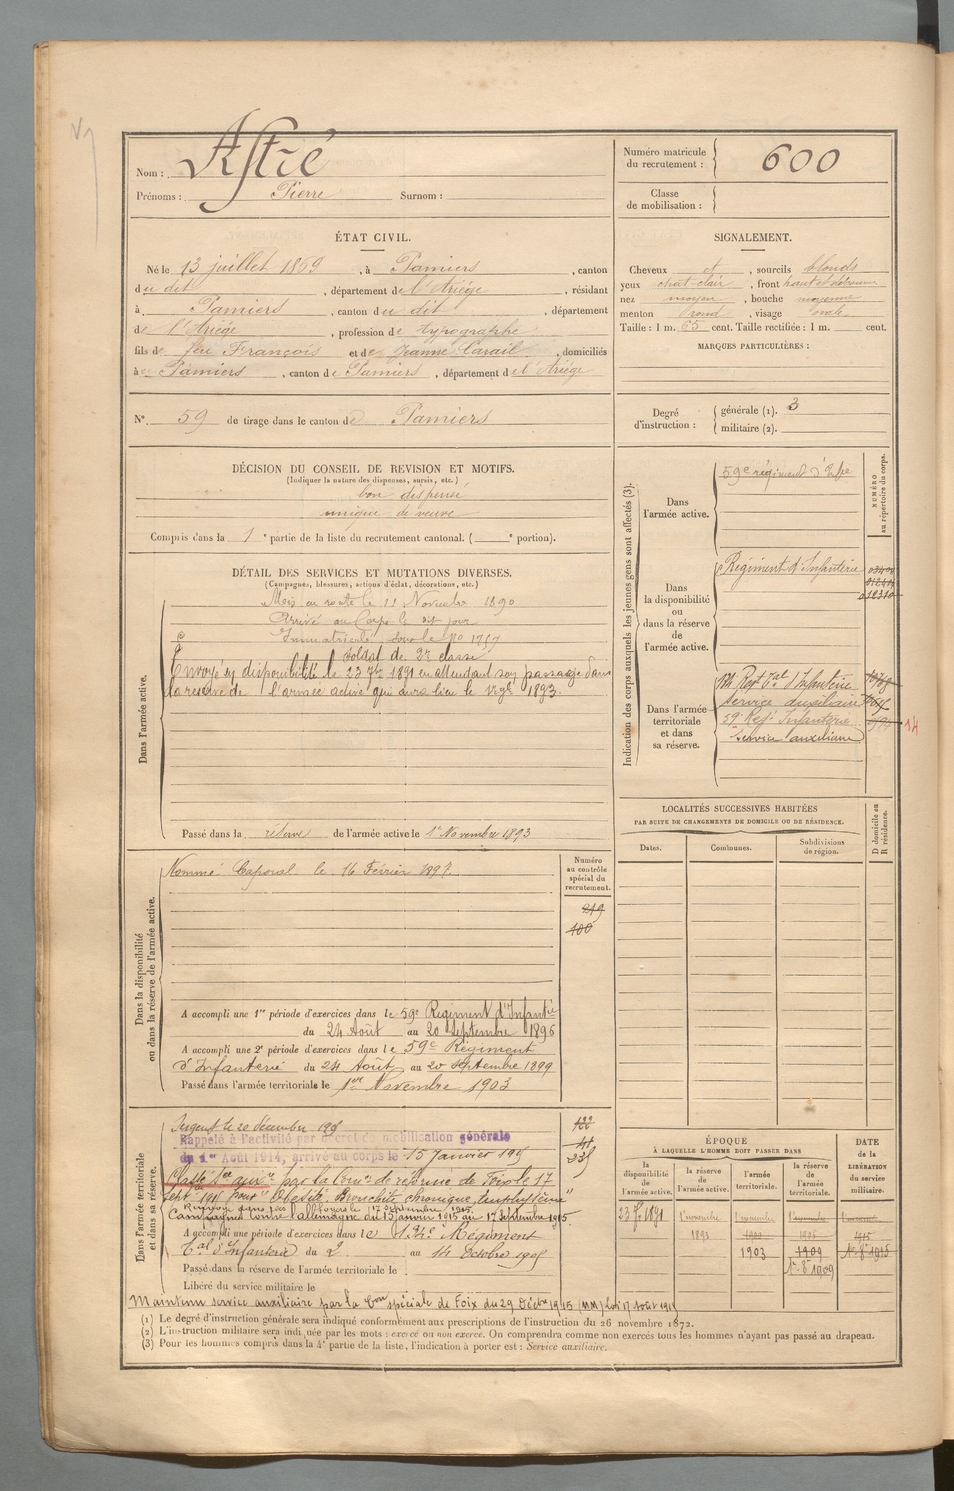 Nom : Astré
Prénoms : Pierre Surnom :
Numéro matricule
du recrutement : 600
Classe
de mobilisation :
ÉTAT CIVIL.
Né le 13 juillet 1869, à Pamiers, canton
du dit, département de l'Ariège, résidant
à Pamiers, canton du dit, département
de l'Ariége, profession de typographe
fils de feu François et de Jeanne, domiciliés
à Pamiers, canton de Pamiers, département de l'Ariége
SIGNALEMENT.
Cheveux et, sourcils blonds
yeux chat-clair, front haut et
nez moyen, bouche moyenne
menton rond, visage ovale
Taille : 1 m. 65 cent. Taille rectifiée : 1 m. cent.
MARQUES PARTICULIÈRES :
N° 59 de tirage dans le canton de Pamiers
Degré
d'instruction :
générale (1). 3
militaire (2).
DÉCISION DU CONSEIL DE REVISION ET MOTIFS.
(Indiquer la nature des dispenses, sursis, etc.)
bon dispensé
unique de veuve
Compris dans la 1e partie de la liste du recrutement cantonal. ( e portion).
DÉTAIL DES SERVICES ET MUTATIONS DIVERSES.
(Campagnes, blessures, actions d'éclat, décorations, etc.)
Dans l'armée active.
Mis en route le 11 Novembre 1890
Arrivé au Corps le dit jour
Immatriculé sous le No
Soldat de 2e classe
Envoyé en disponibilité le 23 7bre 1891 en attendant son passage dans
la réserve de l'armée active qui aura lieu le 1893
Passé dans la réserve de l'armée active le 1er Novembre 1893
Indication des corps auxquels les jeunes gens sont affectés (3).
NUMÉRO
au répertoire du corps.
Dans
l'armée active.
59e régiment d'Infie
Dans
la disponibilité
ou
dans la réserve
de
l'armée active.
Régiment d'Infanterie
Dans l'armée
territoriale
et dans
sa réserve.
134 Regt tal d'Infanterie
Service auxiliaire
59 Regt Infanterie
Service auxiliaire
14
LOCALITÉS SUCCESSIVES HABITÉES
PAR SUITE DE CHANGEMENTS DE DOMICILE OU DE RÉSIDENCE.
Dates.
Communes.
Subdivisions
de région.
D domicile ou
R résidence.
Dans la disponibilité
ou dans la réserve de l'armée active.
Numéro
au contrôle
spécial du
recrutement.
Nommé Caporal le 16 Février 1897
219
100
A accompli une 1re période d'exercices dans le 59e Régiment d'Infantie
du 24 Août au 20 Septembre 1896
A accompli une 2e période d'exercices dans le 59e Régiment
d'Infanterie du 24 Août au 20 septembre 1899
Passé dans l'armée territoriale le 1er Novembre 1903
Dans l'armée territoriale
et dans sa réserve.
Sergent le 20 décembre
122
Rappelé à l'activité par décret de mobilisation générale
du 1er Août 1914, arrivé au corps le 15 Janvier 1915
Classé Ser auxre par la Comon de réforme de Foix le 17
septbre 1915 pour "Obésité, Bronchite chronique, emphysème"
Renvoyé dans ses foyers le 17 septembre 1915
Campagnes contre l'allemagne du 15 janvier 1915 au 17 Septembre 1915
A accompli une période d'exercices dans le 134e Régiment
tal d'Infanterie du 2 au 14 Octobre 1905
Passé dans la réserve de l'armée territoriale le
Libéré du service militaire le
Maintenu service auxiliaire par la Con spéciale de Foix du 29 Décbre 1915 loi 17 Août 1915
ÉPOQUE
À LAQUELLE L'HOMME DOIT PASSER DANS
la
disponibilité
de
l'armée active.
la réserve
de
l'armée active.
l'armée
territoriale.
la réserve
de
l'armée
territoriale.
DATE
de la
LIBÉRATION
du service
militaire.
23 7bre 1891
1er novembre
1893
1er novembre
1903
1909
1er 8bre 1909
1915
1er 8bre 1915
(1) Le degré d'instruction générale sera indiqué conformément aux prescriptions de l'instruction du 26 novembre 1872.
(2) L'instruction militaire sera indiquée par les mots : exercé ou non exercé. On comprendra comme non exercés tous les hommes n'ayant pas passé au drapeau.
(3) Pour les hommes compris dans la 4e partie de la liste, l'indication à porter est : Service auxiliaire.